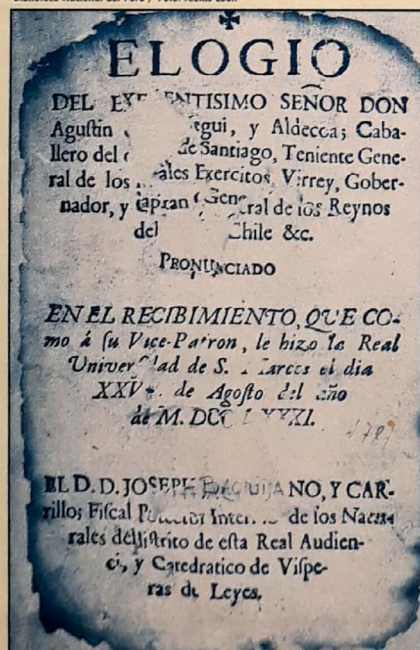 ELOGIO
DEL SEÑOR DON
Agustin y Aldecoa; Caba-
llero del de Santiago, Teniente Gene-
ral de los Exercitos, Virrey, Gober-
nador, y General de los Reynos
del Chile &c.
PRONUNCIADO
EN EL RECIBIMIENTO, QUE CO-
mo á su Vice-Patron, le hizo la Real
de S. Marcos el dia
de Agosto del año
de M.
1781
EL D. D. JOSEPH Y CAR-
rillo; Fiscal de los Natu-
rales del distrito de esta Real Audien-
cia, y Catedratico de Vispe-
ras de Leyes.